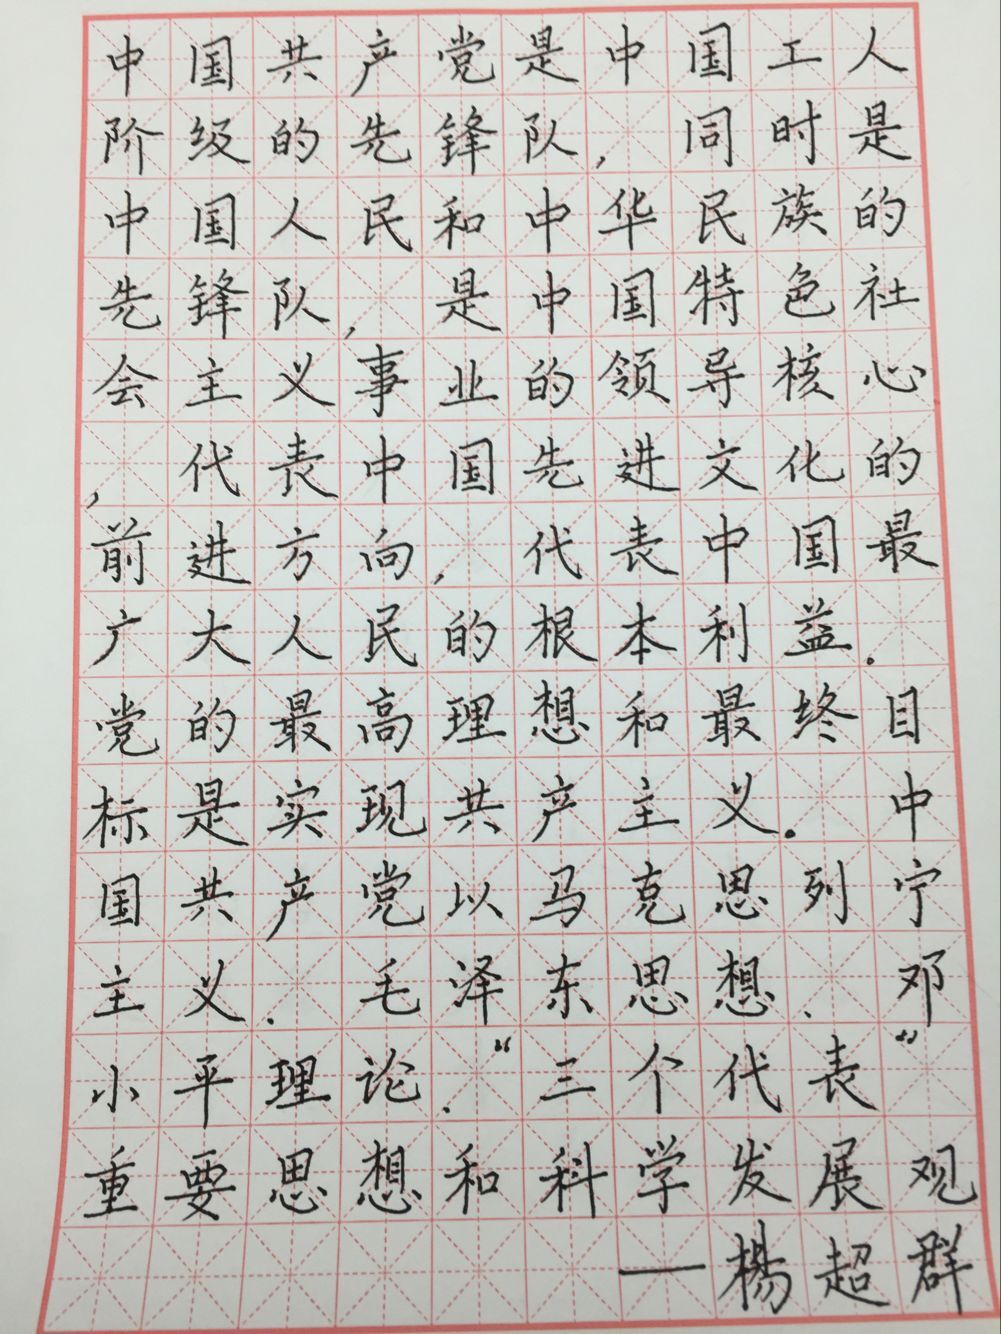 中国共产党是中国工人
阶级的先锋队，同时是
中国人民和中华民族的
先锋队，是中国特色社
会主义事业的领导核心
，代表中国先进文化的
前进方向，代表中国最
广大人民的根本利益.
党的最高理想和最终目
标是实现共产主义。中
国共产党以马克思列宁
主义.毛泽东思想、邓
小平理论.“三个代表”
重要思想和科学发展观
—楊超群